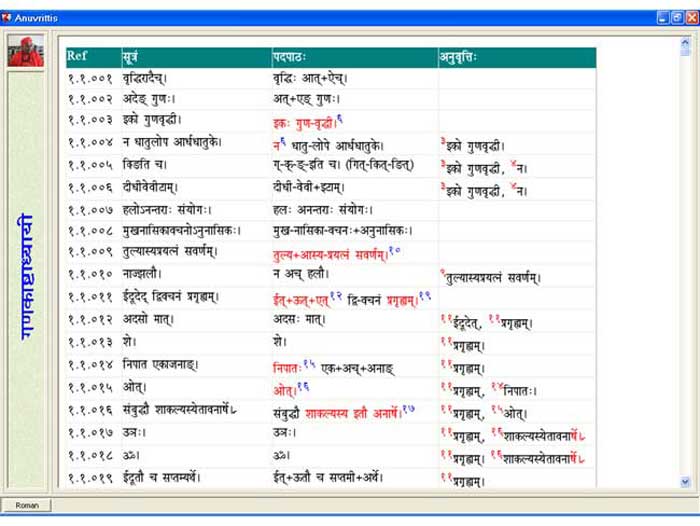 Anuvrittis
Ref सूत्रं पदपाठः अनुवृत्तिः
१.१.००१ वृद्धिरादैच्। वृद्धिः आत्+ऐच्।
१.१.००२ अदेङ् गुणः। अत्+एङ् गुणः।
१.१.००३ इको गुणवृद्धी। इकः गुण-वृद्धी।६
१.१.००४ न धातुलोप आर्धधातुके। न६ धातु-लोपे आर्धधातुके। ३इको गुणवृद्धी।
१.१.००५ क्ङिति च। ग्-क्-ङ्-इति च। (गित्-कित्-ङित्) ३इको गुणवृद्धी, ४न।
१.१.००६ दीधीवेवीटाम्। दीधी-वेवी+इटाम्। ३इको गुणवृद्धी, ४न।
१.१.००७ हलोऽनन्तराः संयोगः। हलः अनन्तराः संयोगः।
१.१.००८ मुखनासिकावचनोऽनुनासिकः। मुख-नासिका-वचनः+अनुनासिकः।
१.१.००९ तुल्यास्यप्रयत्नं सवर्णम्। तुल्य+आस्य-प्रयत्नं सवर्णम्।१०
१.१.०१० नाज्झलौ। न अच् हलौ। ९तुल्यास्यप्रयत्नं सवर्णम्।
१.१.०११ ईदूदेद् द्विवचनं प्रगृह्यम्। ईत्+ऊत्+एत्१२ द्वि-वचनं प्रगृह्यम्।१९
१.१.०१२ अदसो मात्। अदसः मात्। ११ईदूदेत्, ११प्रगृह्यम्।
१.१.०१३ शे। शे। ११प्रगृह्यम्।
१.१.०१४ निपात एकाजनाङ्। निपातः१५ एक+अच्+अनाङ् ११प्रगृह्यम्।
१.१.०१५ ओत्। ओत्।१६ ११प्रगृह्यम्, १४निपातः।
१.१.०१६ संबुद्धौ शाकल्यस्येतावनार्षे। संबुद्धौ शाकल्यस्य इतौ अनार्षे।१७ ११प्रगृह्यम्, १५ओत्।
१.१.०१७ उञः। उञः। ११प्रगृह्यम्, १६शाकल्यस्येतावनार्षे।
१.१.०१८ ऊँ। ऊँ। ११प्रगृह्यम्। १६शाकल्यस्येतावनार्षे।
१.१.०१९ ईदूतौ च सप्तम्यर्थे। ईत्+ऊतौ च सप्तमी+अर्थे। ११प्रगृह्यम्।
गणकाष्टाध्यायी
Roman